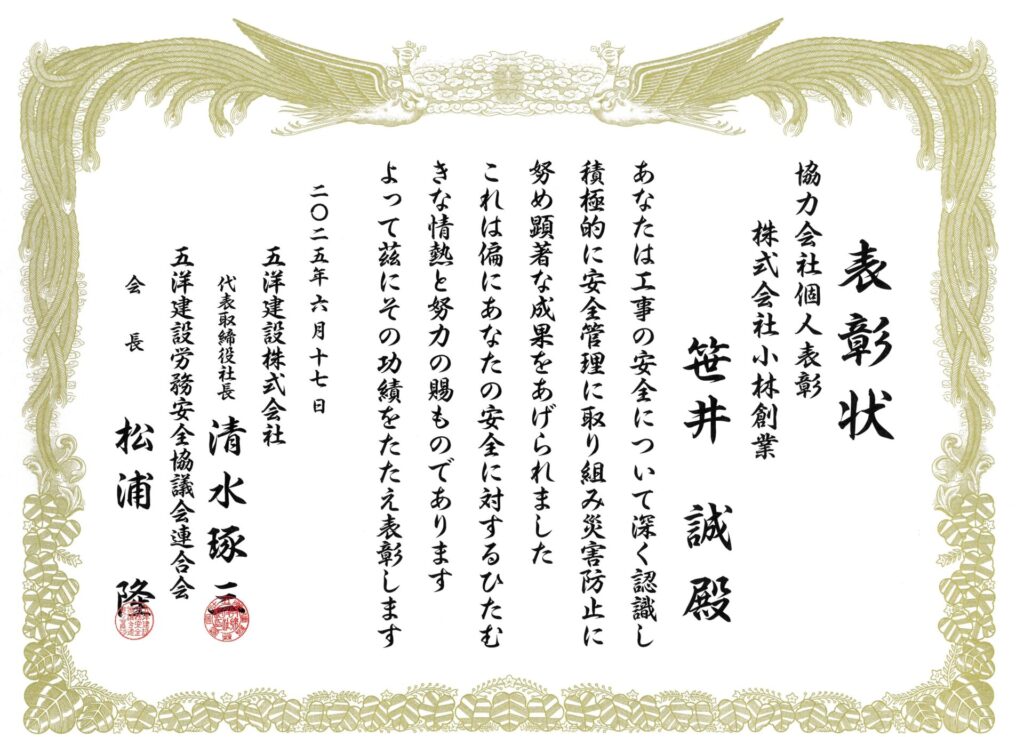 表彰状
協力会社個人表彰
株式会社小林創業
笹井 誠 殿
あなたは工事の安全について深く認識し
積極的に安全管理に取り組み災害防止に
努め顕著な成果をあげられました
これは偏にあなたの安全に対するひたむ
きな情熱と努力の賜ものであります
よって茲にその功績をたたえ表彰します
二〇二五年六月十七日
五洋建設株式会社
代表取締役社長 清水琢三
五洋建設労務安全協議会連合会
会長 松浦 隆